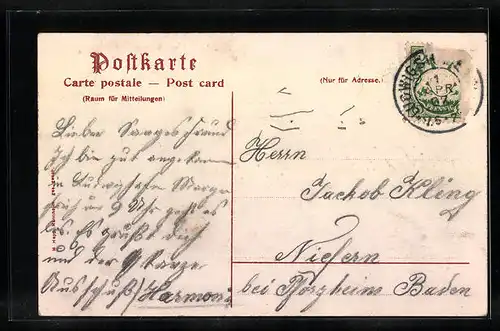 Postkarte
Carte postale — Post card
(Raum für Mitteilungen)
(Nur für Adresse.)
Lieber Sangesfreund
Ich bin gut angekommen
in Ludwigshafen Morgen
früh um 9 Uhr geht es
los. Es grüßt dich
und der ganze
Ausschuß Harmonie
Herrn
Jachob Kling
Niefern
bei Pforzheim Baden